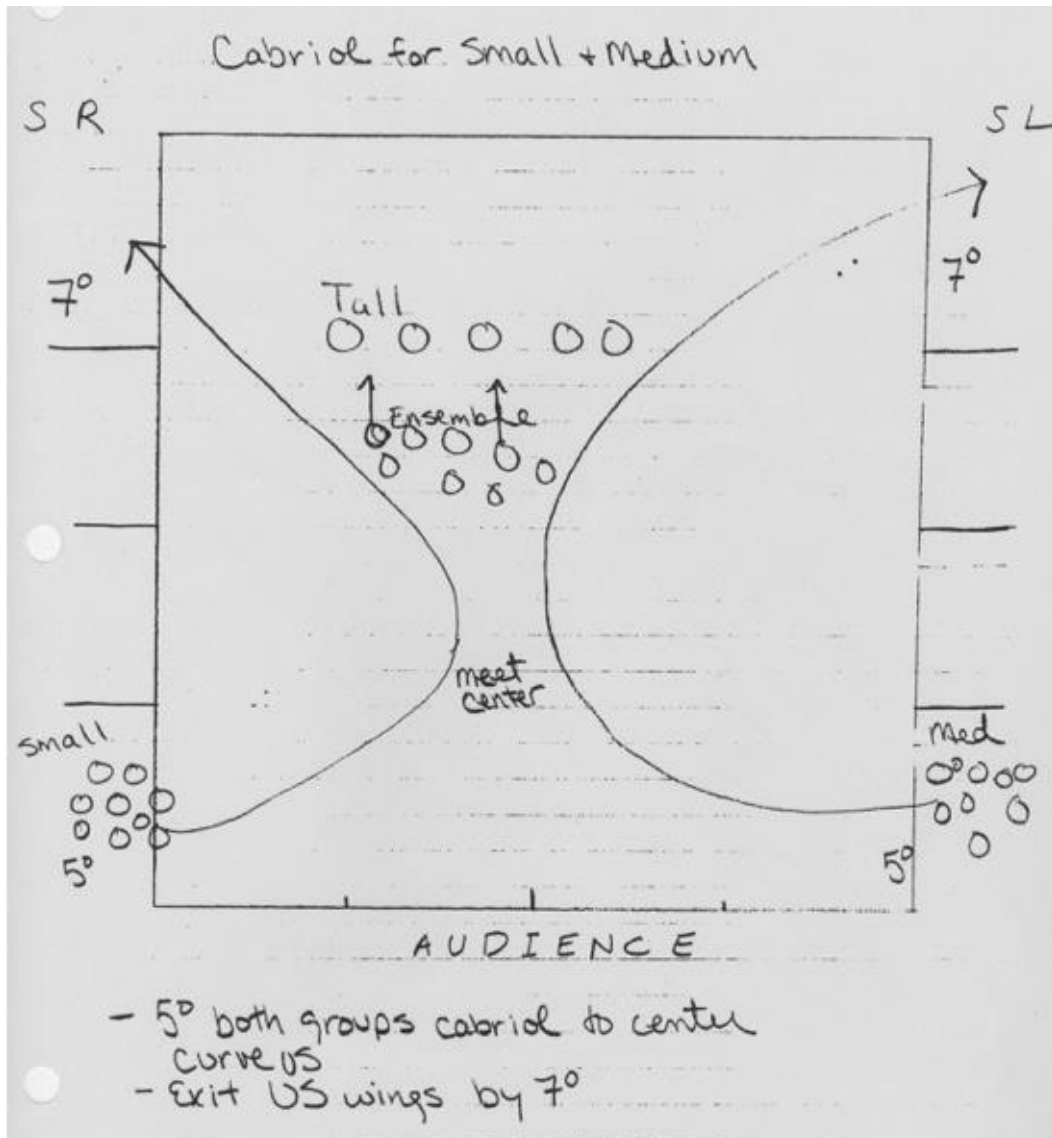 Cabriol for Small + Medium
S R
S L
7°
7°
Tall
Ensemble
meet
center
small
Med
5°
5°
AUDIENCE
- 5° both groups cabriol to center
curve US
- Exit US wings by 7°